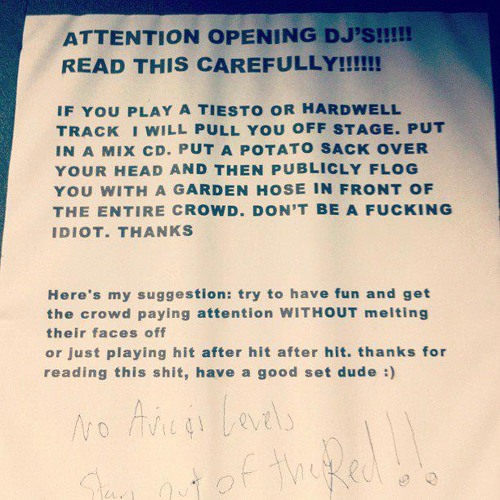 ATTENTION OPENING DJ'S!!!!!
READ THIS CAREFULLY!!!!!!
IF YOU PLAY A TIESTO OR HARDWELL
TRACK I WILL PULL YOU OFF STAGE. PUT
IN A MIX CD. PUT A POTATO SACK OVER
YOUR HEAD AND THEN PUBLICLY FLOG
YOU WITH A GARDEN HOSE IN FRONT OF
THE ENTIRE CROWD. DON'T BE A FUCKING
IDIOT. THANKS
Here's my suggestion: try to have fun and get
the crowd paying attention WITHOUT melting
their faces off
or just playing hit after hit after hit. thanks for
reading this shit, have a good set dude :)
No Avicii Levels
Stay out of the Red!!